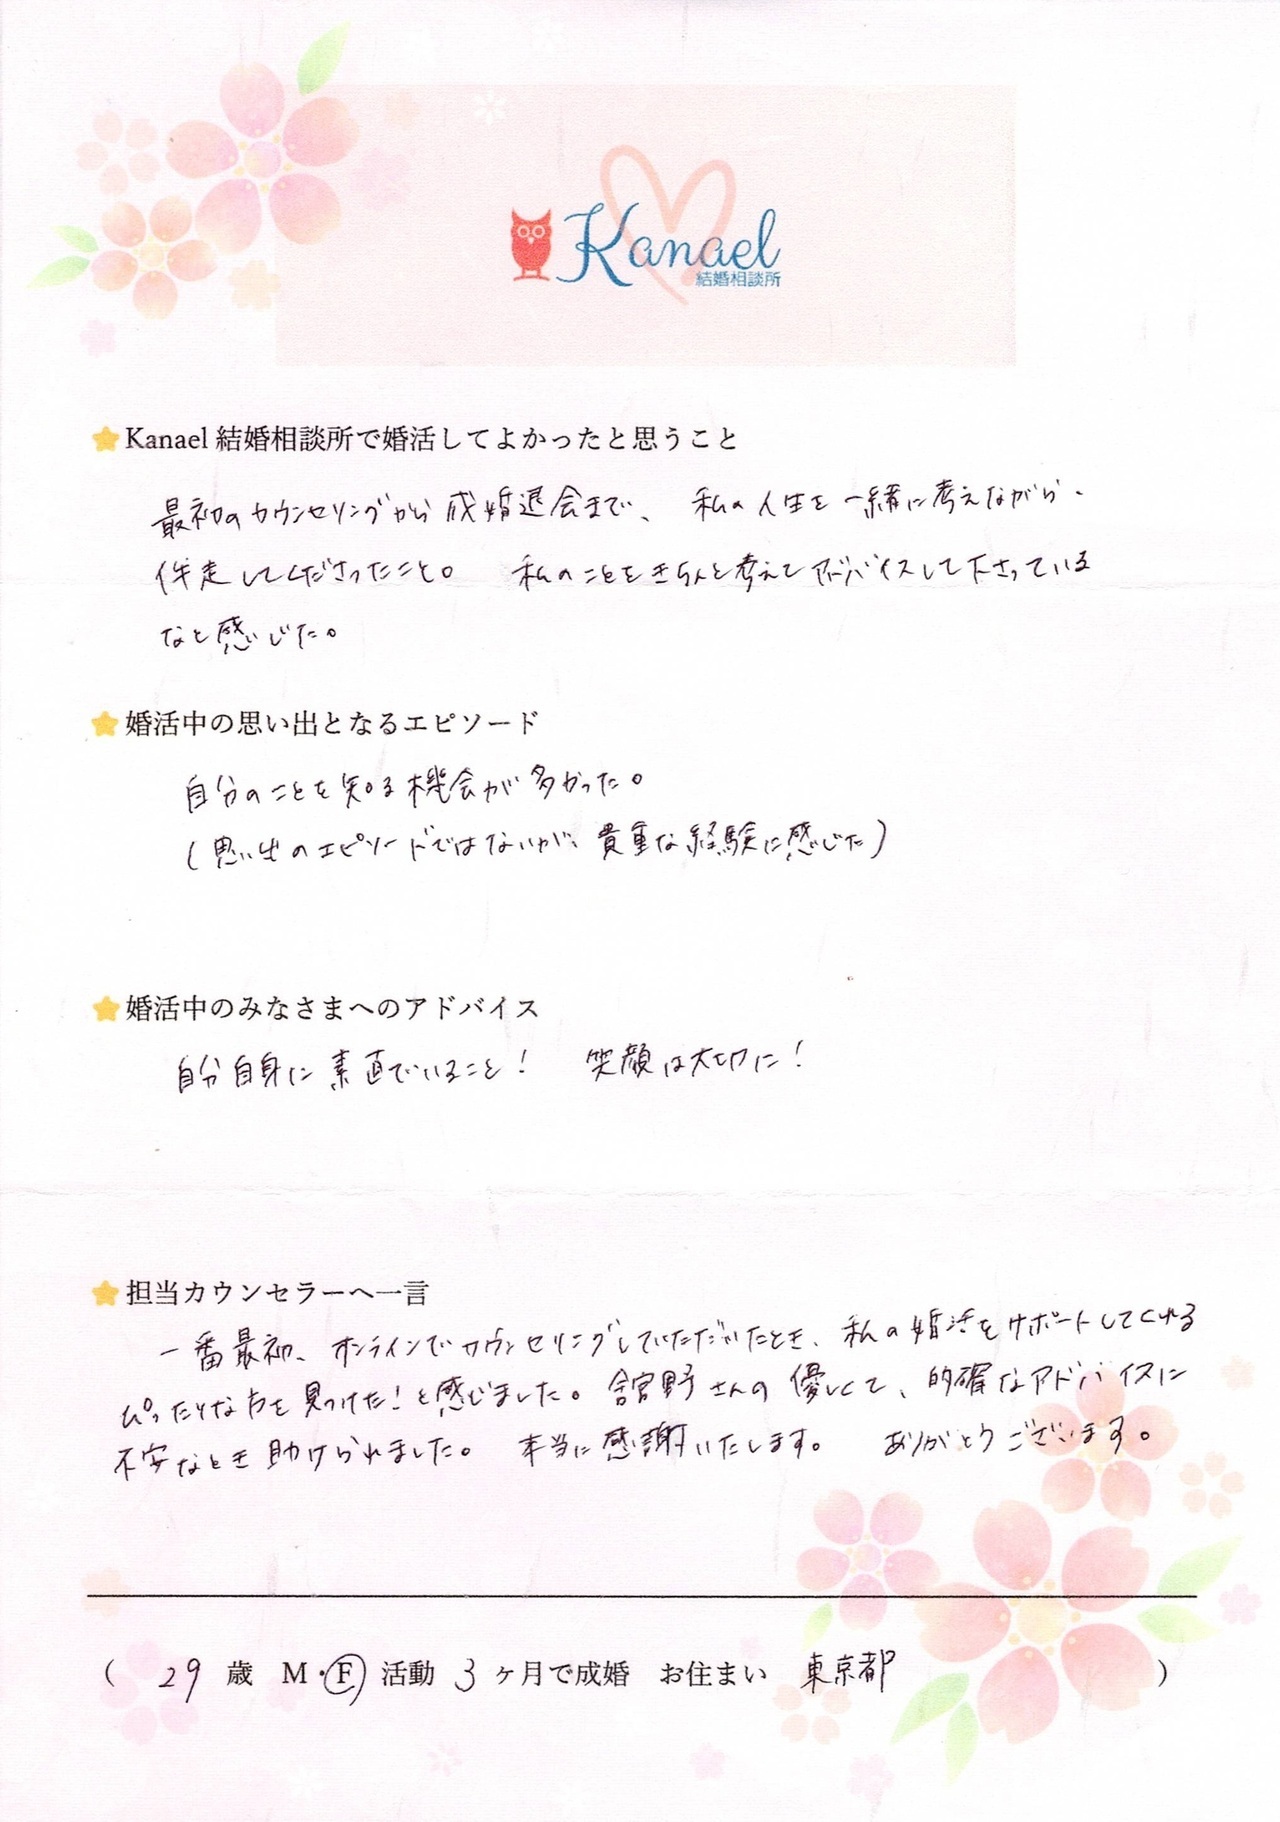 Kanael
結婚相談所
Kanael 結婚相談所で婚活してよかったと思うこと
最初のカウンセリングから成婚退会まで、私の人生を一緒に考えながら、
伴走してくださったこと。 私のことをきちんと考えてアドバイスして下さっている
なと感じた。
婚活中の思い出となるエピソード
自分のことを知る機会が多かった。
(思い出のエピソードではないが、貴重な経験に感じた)
婚活中のみなさまへのアドバイス
自分自身に素直でいること! 笑顔は大切に!
担当カウンセラーへ一言
一番最初、オンラインでカウンセリングしていただいたとき、私の婚活をサポートしてくれる
ぴったりな方を見つけた!と感じました。舘野さんの優しくて、的確なアドバイスに
不安なとき助けられました。 本当に感謝いたします。 ありがとうございます。
( 29 歳 M・F 活動 3 ヶ月で成婚 お住まい 東京都 )